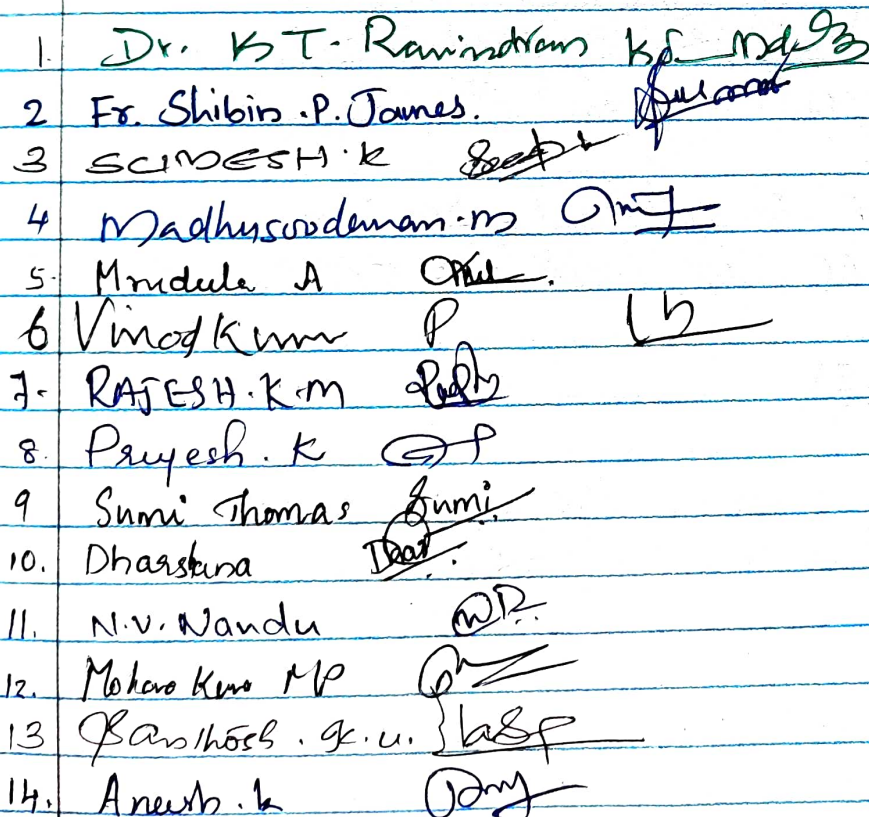 1. Dr. K T. Ravindran
2 Fr. Shibin .P. James.
3 SUDESH.K
4 Madhusoodanan.m
5. Mrudula A
6 Vinod Kumr P
7. RAJESH.K.M
8. Preyesh . K
9 Sumi Thomas Sumi
10. Dharshana
11. N.V. Nandu
12. Mohan Kumr MP
13 Santhosh . K.U.
14. Aneesh .k